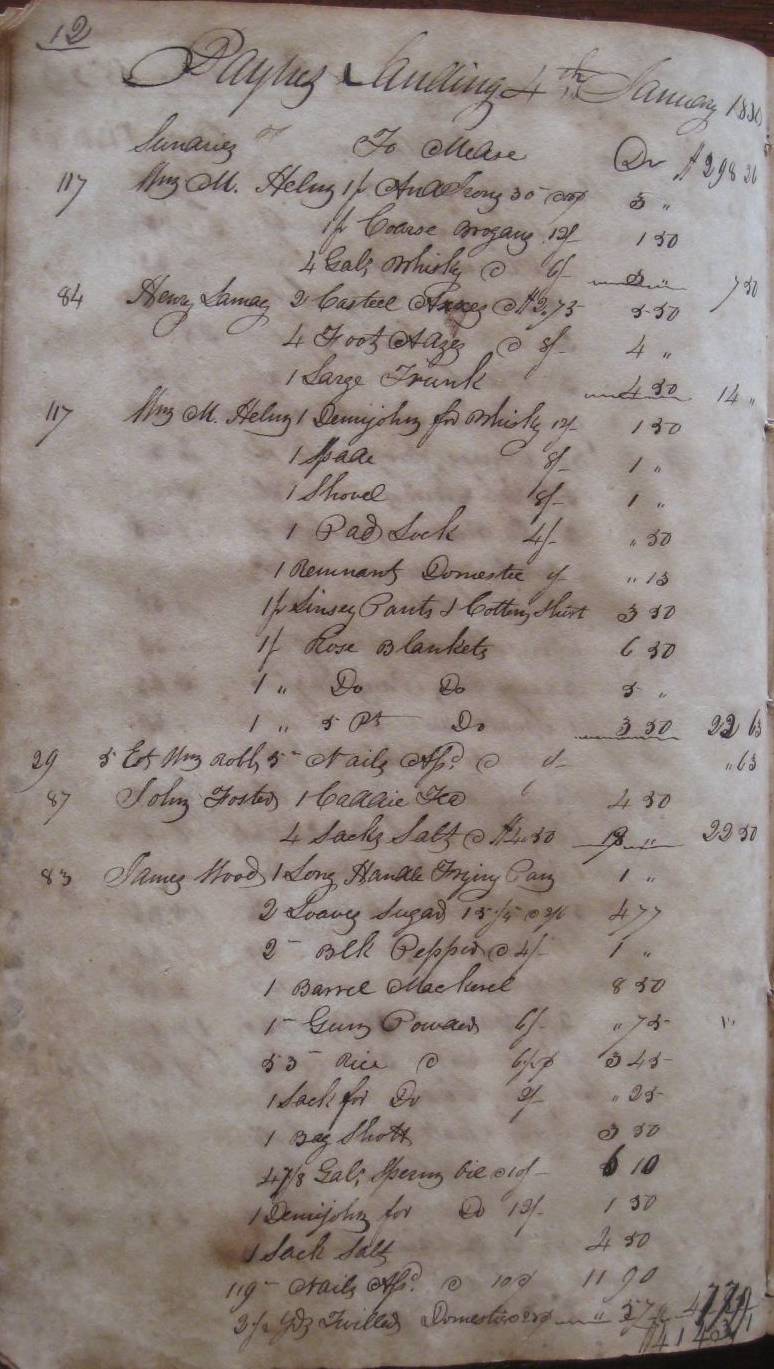 12
Paynes Landing 4th January 18
Sunaries To Mdse Dr $298 26
117 Wm M. Helm 1 pr And Irons 30 3 "
1 pr Coarse Brogans 12/- 1 50
4 Gals Whisky @ 6/- 3 " 7 50
84 Henry 2 Casteel Axxes @ $2.75 5 50
4 Foot Adzes @ 8/- 4 "
1 Large Trunk 4 50 14 "
117 Wm M. Helm 1 Demijohn for Whisky 12/- 1 50
1 Spade 8/- 1 "
1 Shovel 8/- 1 "
1 Pad Lock 4/- " 50
1 Remnant Domestic " 13
1 pr Linsey Pants & Cotton Shirt 3 50
1 pr Rose Blankets 6 50
1 " Do Do 5 "
1 " 5 Pt Do 3 50 22 63
29 Est Wm 5 Nails Assd @ " 63
87 John Foster 1 Caddie Tea 4 50
4 Sacks Salt @ $4.50 18 " 22 50
83 James Wood 1 Long Handle Frying Pan 1 "
2 Loaves Sugar 4 77
2 Blk Pepper @ 4/- 1 "
1 Barrel Mackerel 8 50
1 Gun Powder 6/- " 75
53 Rice @ 3 45
1 Sack for Do 2/- " 25
1 Bag Shott 3 50
4 7/8 Gals Sperm Oil @ 10/- 6 10
1 Demijohn for Do 12/- 1 50
1 Sack Salt 4 50
119 Nails Assd @ 10¢ 11 90
Yds Twilled Domestic